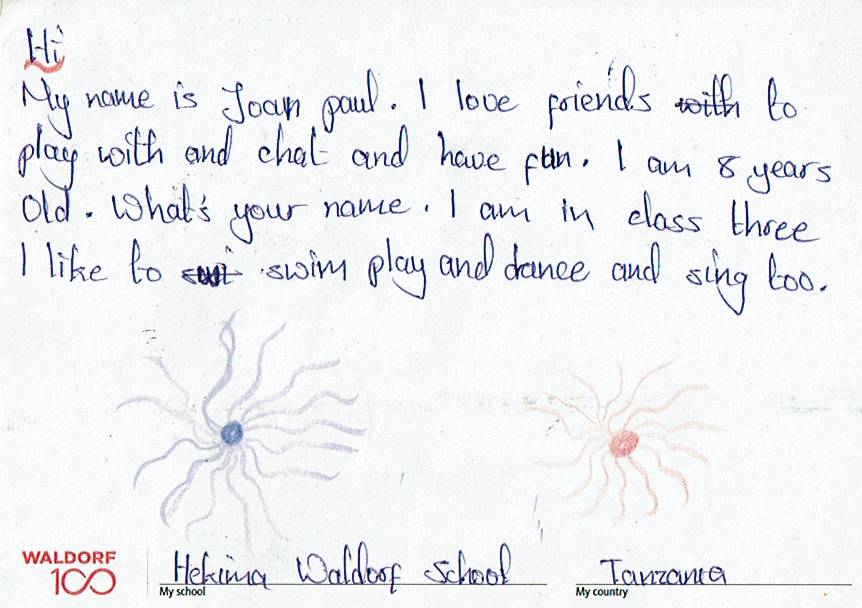 Hi
My name is Joan paul. I love friends with to
play with and chat and have fun. I am 8 years
old. What's your name. I am in class three
I like to swim play and dance and sing too.
WALDORF
100
Hekima Waldorf School
My school
Tanzania
My country